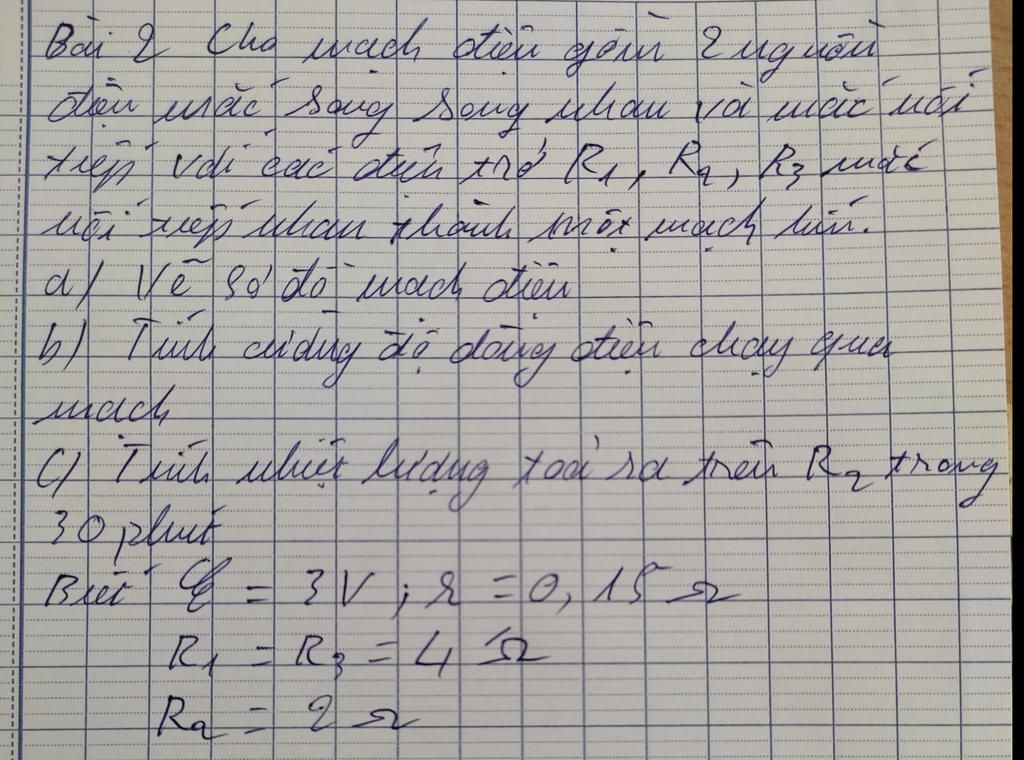 Bài 2 Cho mạch điện gồm 2 nguồn
điện mắc song song nhau và mắc nối
tiếp với các điện trở R1, R2, R3 mắc
nối tiếp nhau thành một mạch kín.
a) Vẽ sơ đồ mạch điện
b) Tính cường độ dòng điện chạy qua
mạch
c) Tính nhiệt lượng toả ra trên R2 trong
30 phút
Biết ℰ = 3V ; r = 0,15 Ω
R1 = R3 = 4 Ω
R2 = 2 Ω